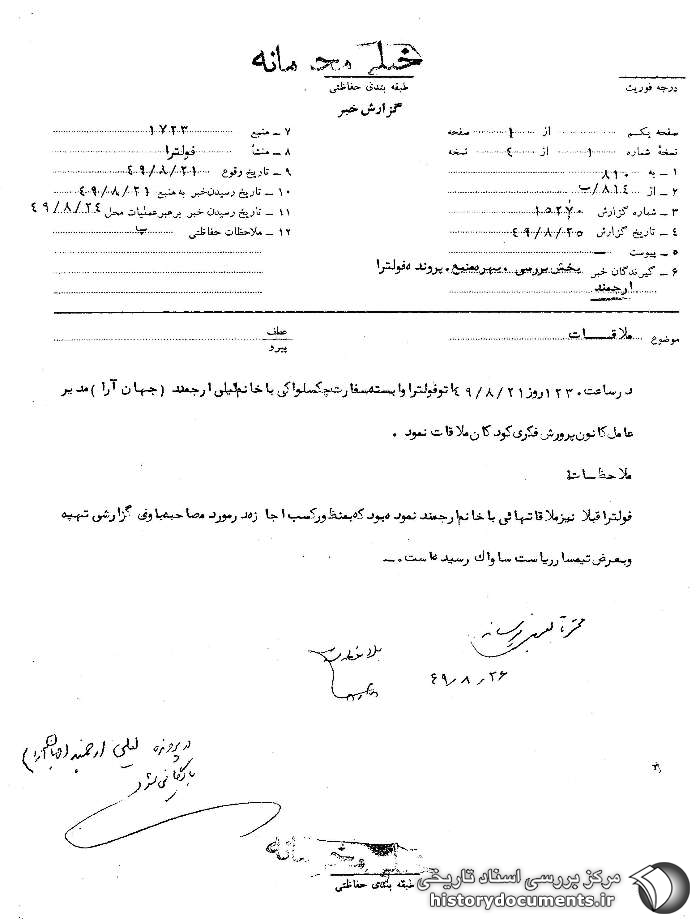 خیلی محرمانه
طبقه بندی حفاظتی
گزارش خبر
درجه فوریت
صفحه یکم از ۱ صفحه
نسخهٔ شماره ۱ از ۴ نسخه
۱ – به ۸۱۰
۲ – از ۸۱۴/ب
۳ – شماره گزارش ۱۵۲۷۰
۴ – تاریخ گزارش ۴۹/۸/۲۵
۵ – پیوست –
۶ – گیرندگان خبر بخش بررسی . بهره منبع . پرونده فولترا
ارجمند
۷ – منبع ۱۷۲۳
۸ – منشأ فولترا
۹ – تاریخ وقوع ۴۹/۸/۲۱
۱۰ – تاریخ رسیدن خبر به منبع ۴۹/۸/۲۱
۱۱ – تاریخ رسیدن خبر برهبر عملیات محل ۴۹/۸/۲۴
۱۲ – ملاحظات حفاظتی ب
موضوع ملاقات
عطف
پیرو
در ساعت ۱۲۳۰ روز ۴۹/۸/۲۱ اتو فولترا وابسته سفارت چکسلواکی با خانم لیلی ارجمند (جهان آرا) مدیر
عامل کانون پرورش فکری کودکان ملاقات نمود .
ملاحظات :
فولترا قبلا نیز ملاقاتهائی با خانم ارجمند نموده بود که بمنظور کسب اجازه در مورد مصاحبه با وی گزارشی تهیه
و بعرض تیمسار ریاست ساواک رسیده است . –
۴۹/۸/۲۶
در پرونده لیلی ارجمند (جهان آرا)
بایگانی شود
خیلی محرمانه
طبقه بندی حفاظتی
مرکز بررسی اسناد تاریخی
historydocuments.ir